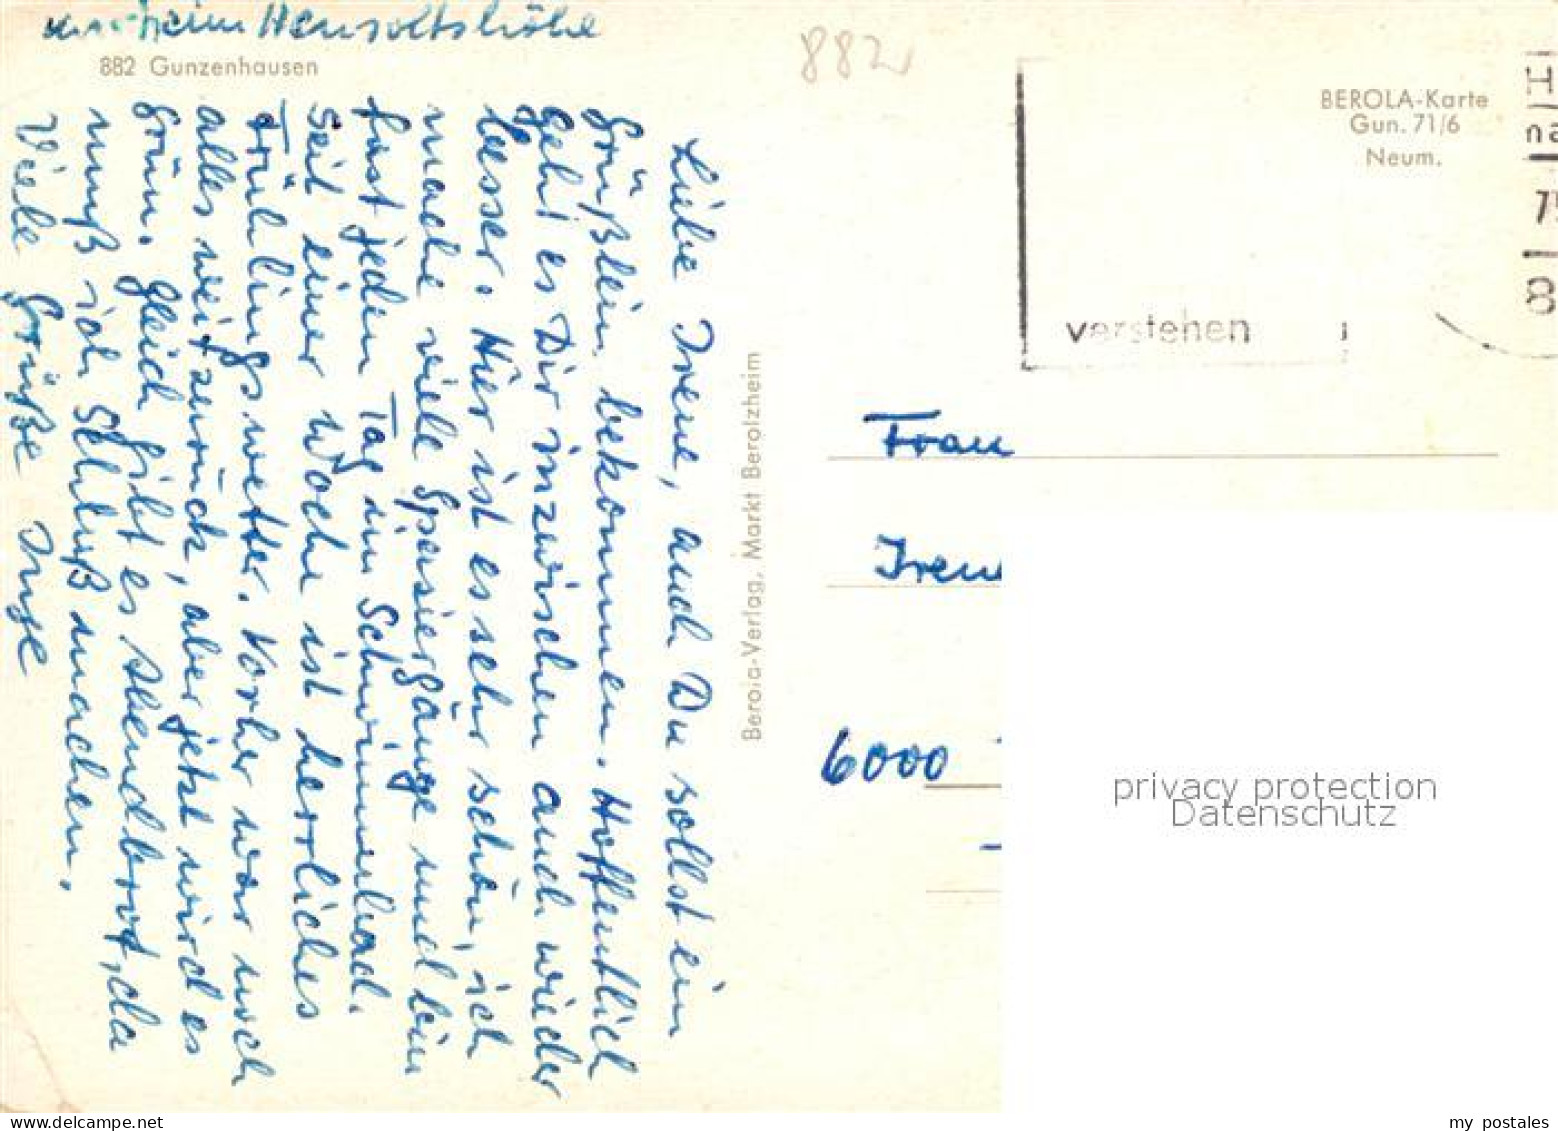 Kurheim Hensoltshöhe
882 Gunzenhausen
882
BEROLA-Karte
Gun. 71/6
Neum.
verstehen
8
Liebe Irene, auch Du sollst ein
Grüßlein bekommen. Hoffentlich
geht es Dir inzwischen auch wieder
besser. Hier ist es sehr schön, ich
mache viele Spaziergänge und bin
fast jeden Tag im Schwimmbad.
Seit einer Woche ist herrliches
Frühlingswetter. Vorher war noch
alles weit zurück, aber jetzt wird es
grün. Gleich gibt es Abendbrot, da
muß ich Schluß machen.
Viele Grüße Inge
Berola-Verlag, Markt Berolzheim
Frau
Irene
6000
privacy protection
Datenschutz
my postales